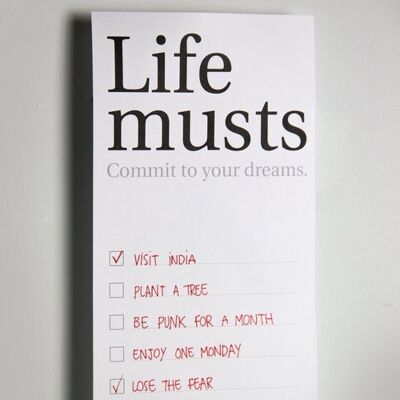 Life
musts
Commit to your dreams.
VISIT INDIA
PLANT A TREE
BE PUNK FOR A MONTH
ENJOY ONE MONDAY
LOSE THE FEAR